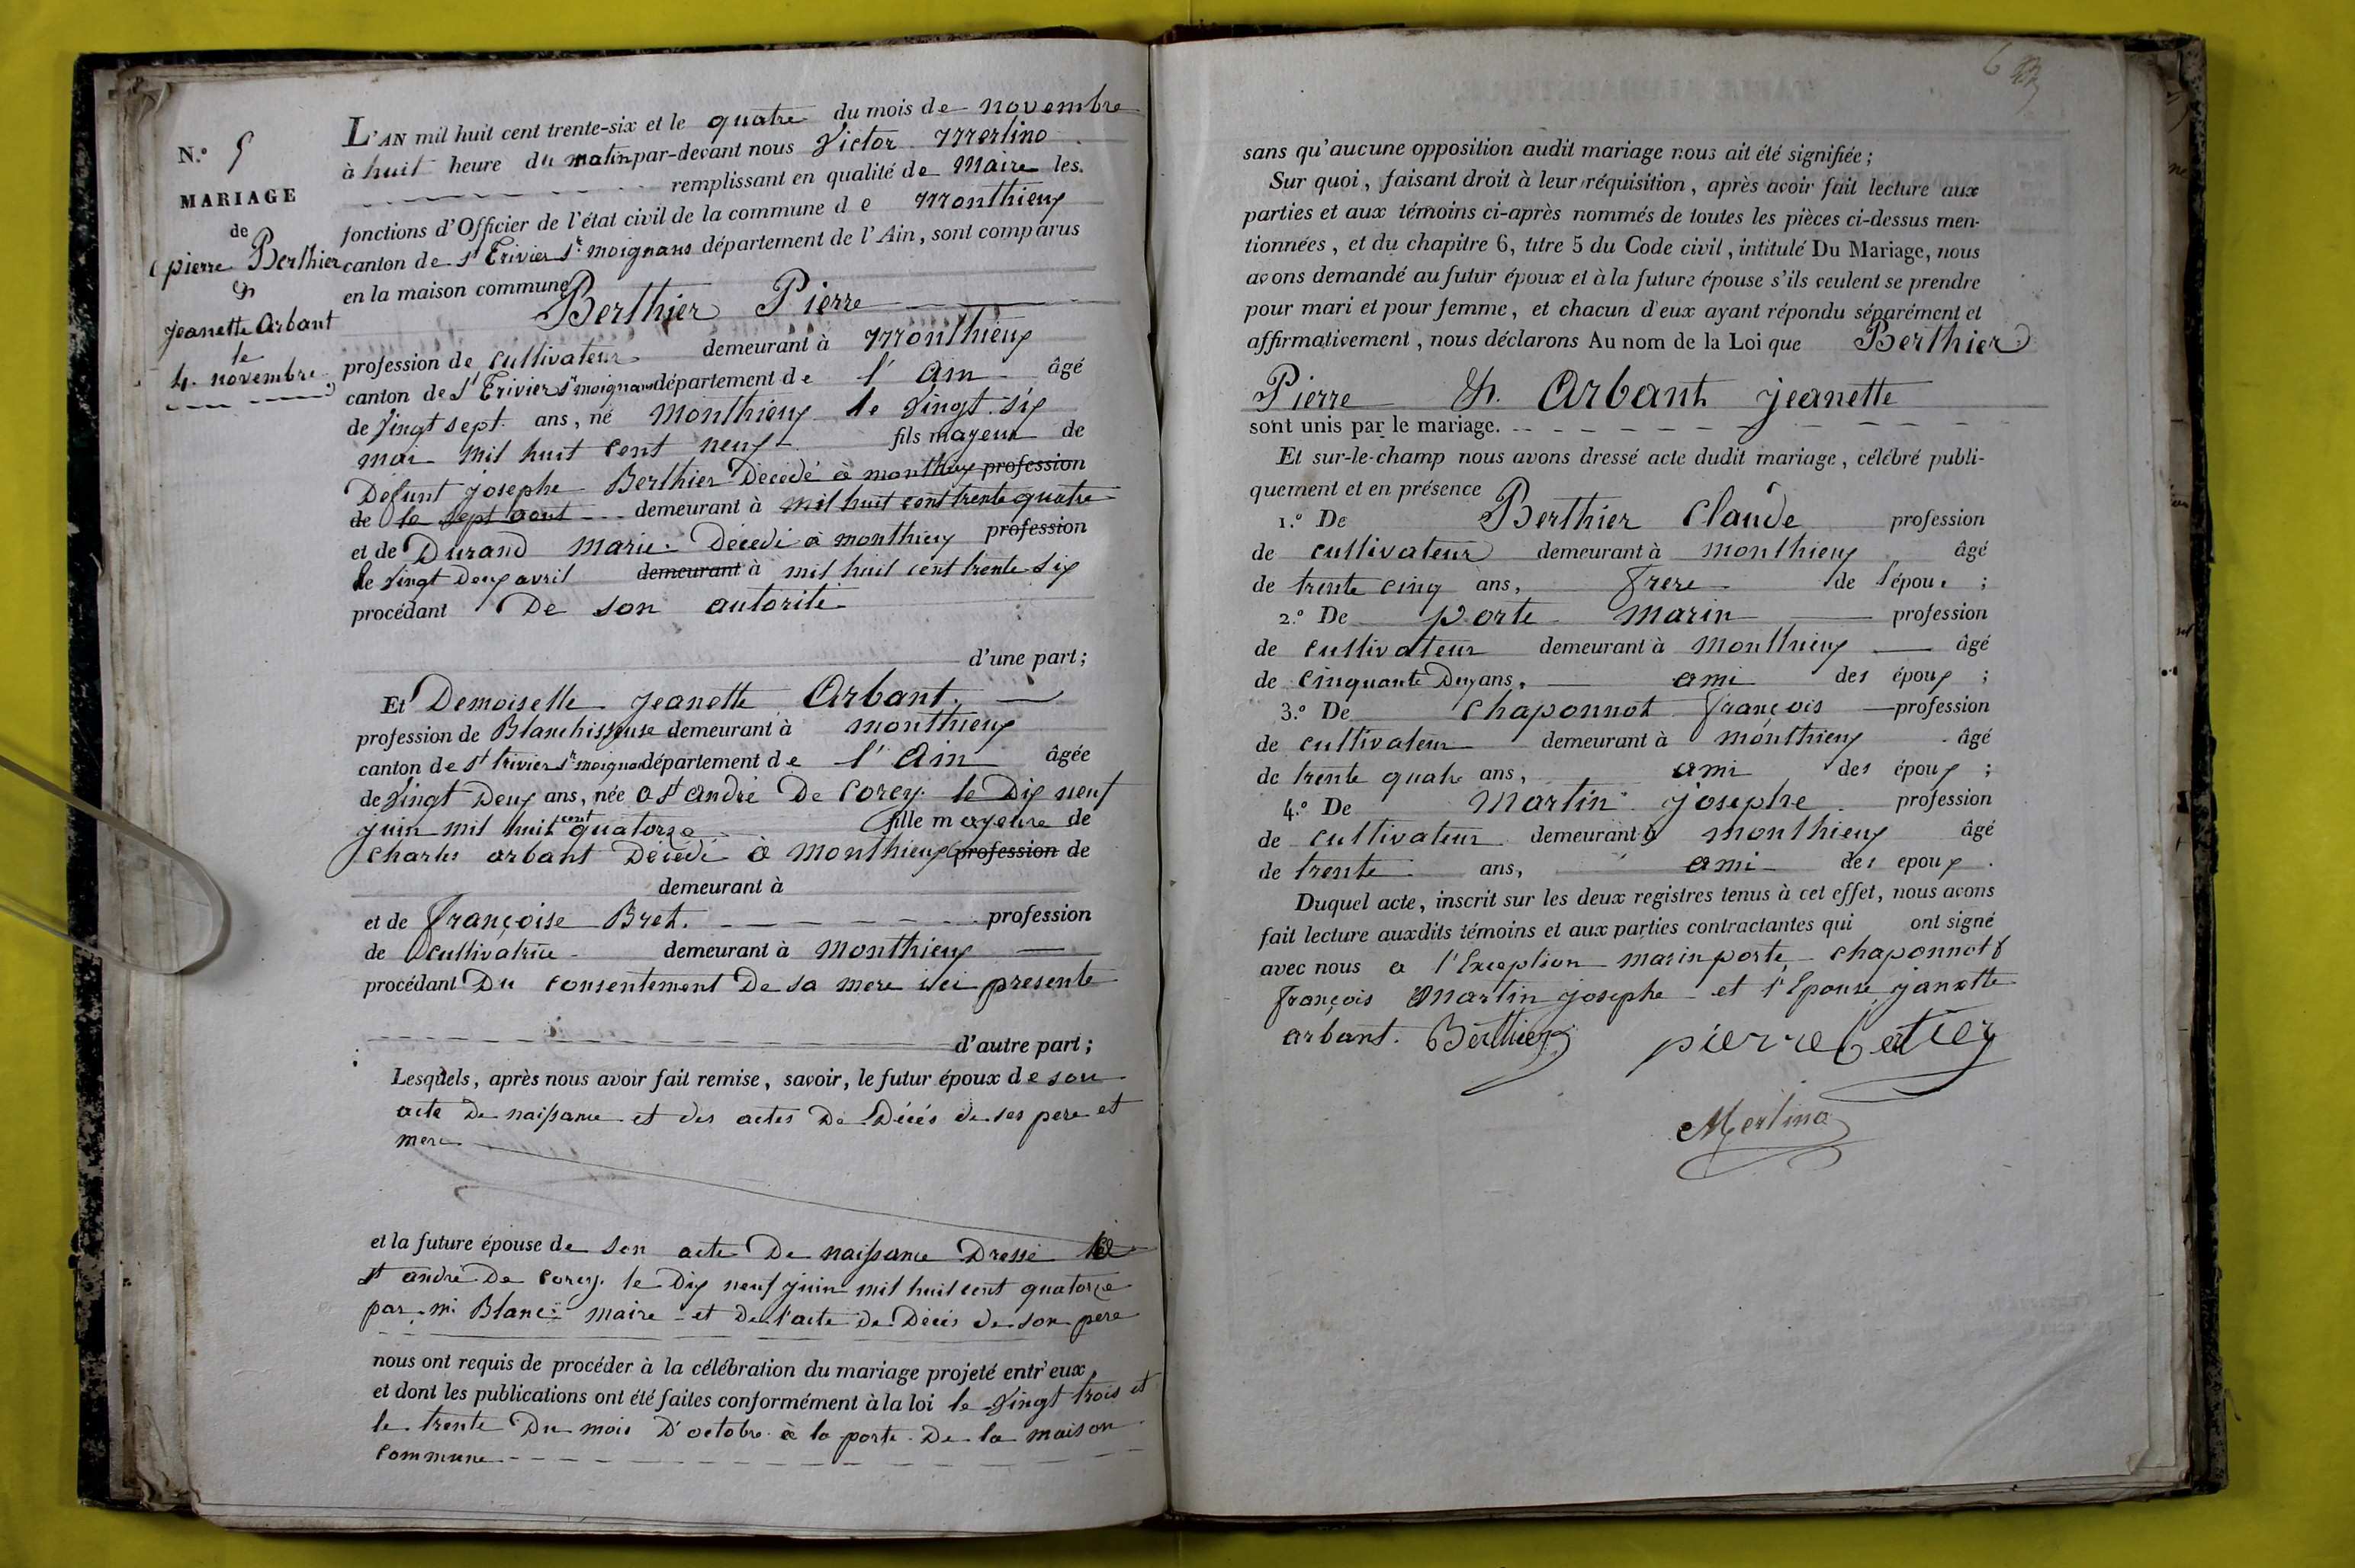 N.º 5
MARIAGE
de
pierre Berthier
&
jeanette Arbant
le
4. novembre
L'AN mil huit cent trente-six et le quatre du mois de novembre
à huit heure du matin par-devant nous Victor Merlino
remplissant en qualité de Maire les
fonctions d'Officier de l'état civil de la commune de Monthieux
canton de st Trivier sr moignans département de l'Ain, sont comparus
en la maison commune
Berthier Pierre
profession de cultivateur demeurant à Monthieux
canton de st Trivier sr moignans département de l'Ain âgé
de vingt sept ans, né Monthieux le vingt six
mai mil huit cent neuf fils mayeur de
Defunt josephe Berthier Décédé à monthieux profession
de le sept aout demeurant à mil huit cent trente quatre
et de Durand marie Décédé à monthieux profession
de vingt deux avril demeurant à mil huit cent trente six
procédant De son autorité
d'une part;
Et Demoiselle jeanette Arbant
profession de Blanchisseuse demeurant à monthieux
canton de st trivier sr moignans département de l'Ain âgée
de vingt Deux ans, née a st andré De Corcy le Dix neuf
juin mil huit cent quatorze fille mayeure de
charles arbant Décédé à Monthieux profession de
demeurant à
et de françoise Bret. profession
de cultivatrice demeurant à Monthieux
procédant Du consentement De sa mere ici presente
d'autre part;
Lesquels, après nous avoir fait remise, savoir, le futur époux de son
acte De naissance et des actes De Décés de ses pere et
mere
et la future épouse de son acte De naissance Dressé
st andré De Corcy le Dix neuf juin mil huit cent quatorze
par mr Blanc maire et De l'acte De Décés de son pere
nous ont requis de procéder à la célébration du mariage projeté entr'eux,
et dont les publications ont été faites conformément à la loi le vingt trois et
le trente Du mois D'octobre à la porte De la maison
commune
6
sans qu'aucune opposition audit mariage nous ait été signifiée;
Sur quoi, faisant droit à leur réquisition, après avoir fait lecture aux
parties et aux témoins ci-après nommés de toutes les pièces ci-dessus men-
tionnées, et du chapitre 6, titre 5 du Code civil, intitulé Du Mariage, nous
avons demandé au futur époux et à la future épouse s'ils veulent se prendre
pour mari et pour femme, et chacun d'eux ayant répondu séparément et
affirmativement, nous déclarons Au nom de la Loi que Berthier
Pierre & Arbant jeanette
sont unis par le mariage.
Et sur-le-champ nous avons dressé acte dudit mariage, célébré publi-
quement et en présence
1.º De Berthier Claude profession
de cultivateur demeurant à monthieux âgé
de trente cinq ans, frere de l'épou ;
2.º De porte marin profession
de cultivateur demeurant à Monthieux âgé
de cinquante Deux ans, ami des époux ;
3.º De chaponnot françois profession
de cultivateur demeurant à monthieux âgé
de trente quatre ans, ami des époux ;
4.º De Martin josephe profession
de cultivateur demeurant à monthieux âgé
de trente ans, ami des epoux.
Duquel acte, inscrit sur les deux registres tenus à cet effet, nous avons
fait lecture auxdits témoins et aux parties contractantes qui ont signé
avec nous a l'Exception marin porte, chaponnot
françois Martin josephe et l'Epouse janette
arbant. Berthier pierre Batier
Merlino